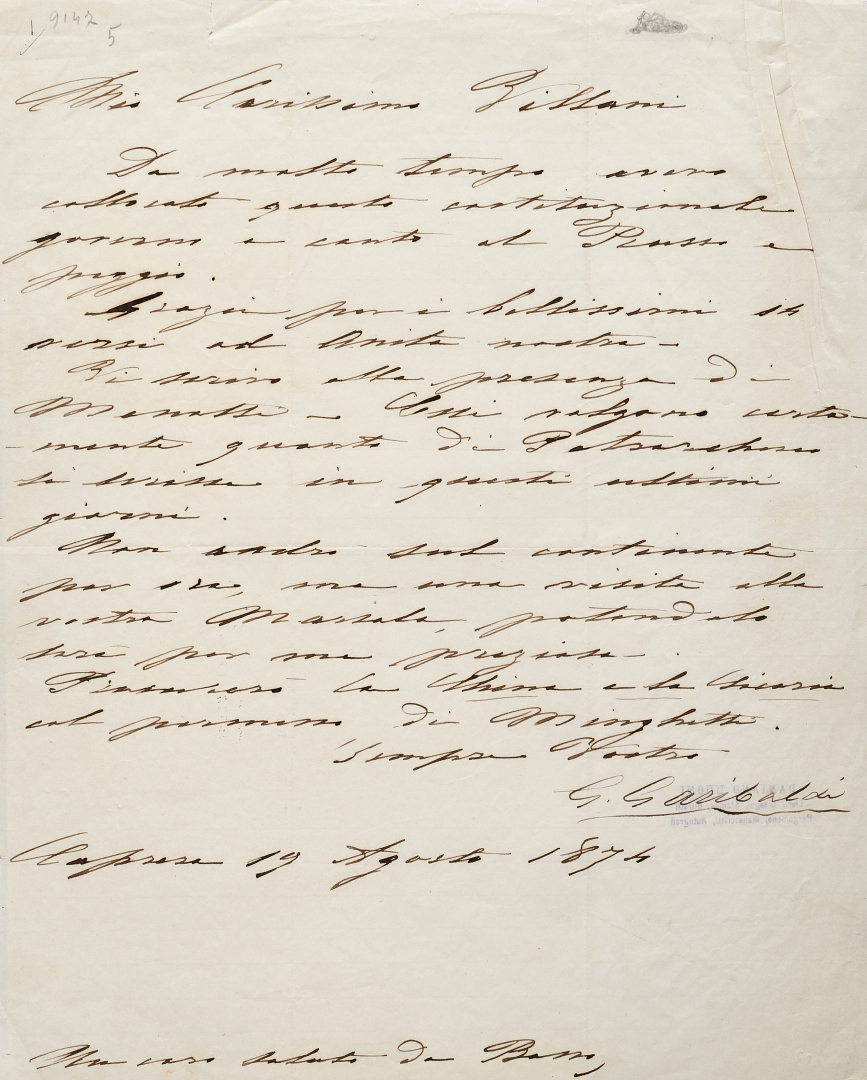 1/9142 5
Mio Carissimo Villani
Da molto tempo avevo
collocato questo costituzionale
governo a canto al Russo e
peggio.
Grazie per i bellissimi 14
versi ad Anita nostra –
Vi scrivo alla presenza di
Menotti – Essi valgono certa-
-mente quanto di Petrarchesco
si scrisse in questi ultimi
giorni.
Non andrò sul continente
per ora, ma una visita alla
vostra Marsala, potendolo
sarà per me preziosa.
Procurerò la China e la Sicaria
col permesso di Minghetti.
Sempre Vostro
G. Garibaldi
Caprera 19 Agosto 1874
Un caro saluto da Basso,